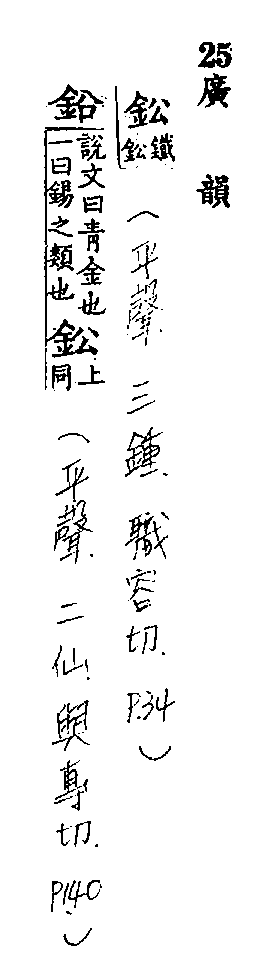 25廣 韻
鈆鈆鐵(平聲.三鍾.職容切.P.34)
鉛說文曰青金也一曰錫之類也鈆上同(平聲.二仙.與專切.P.140)